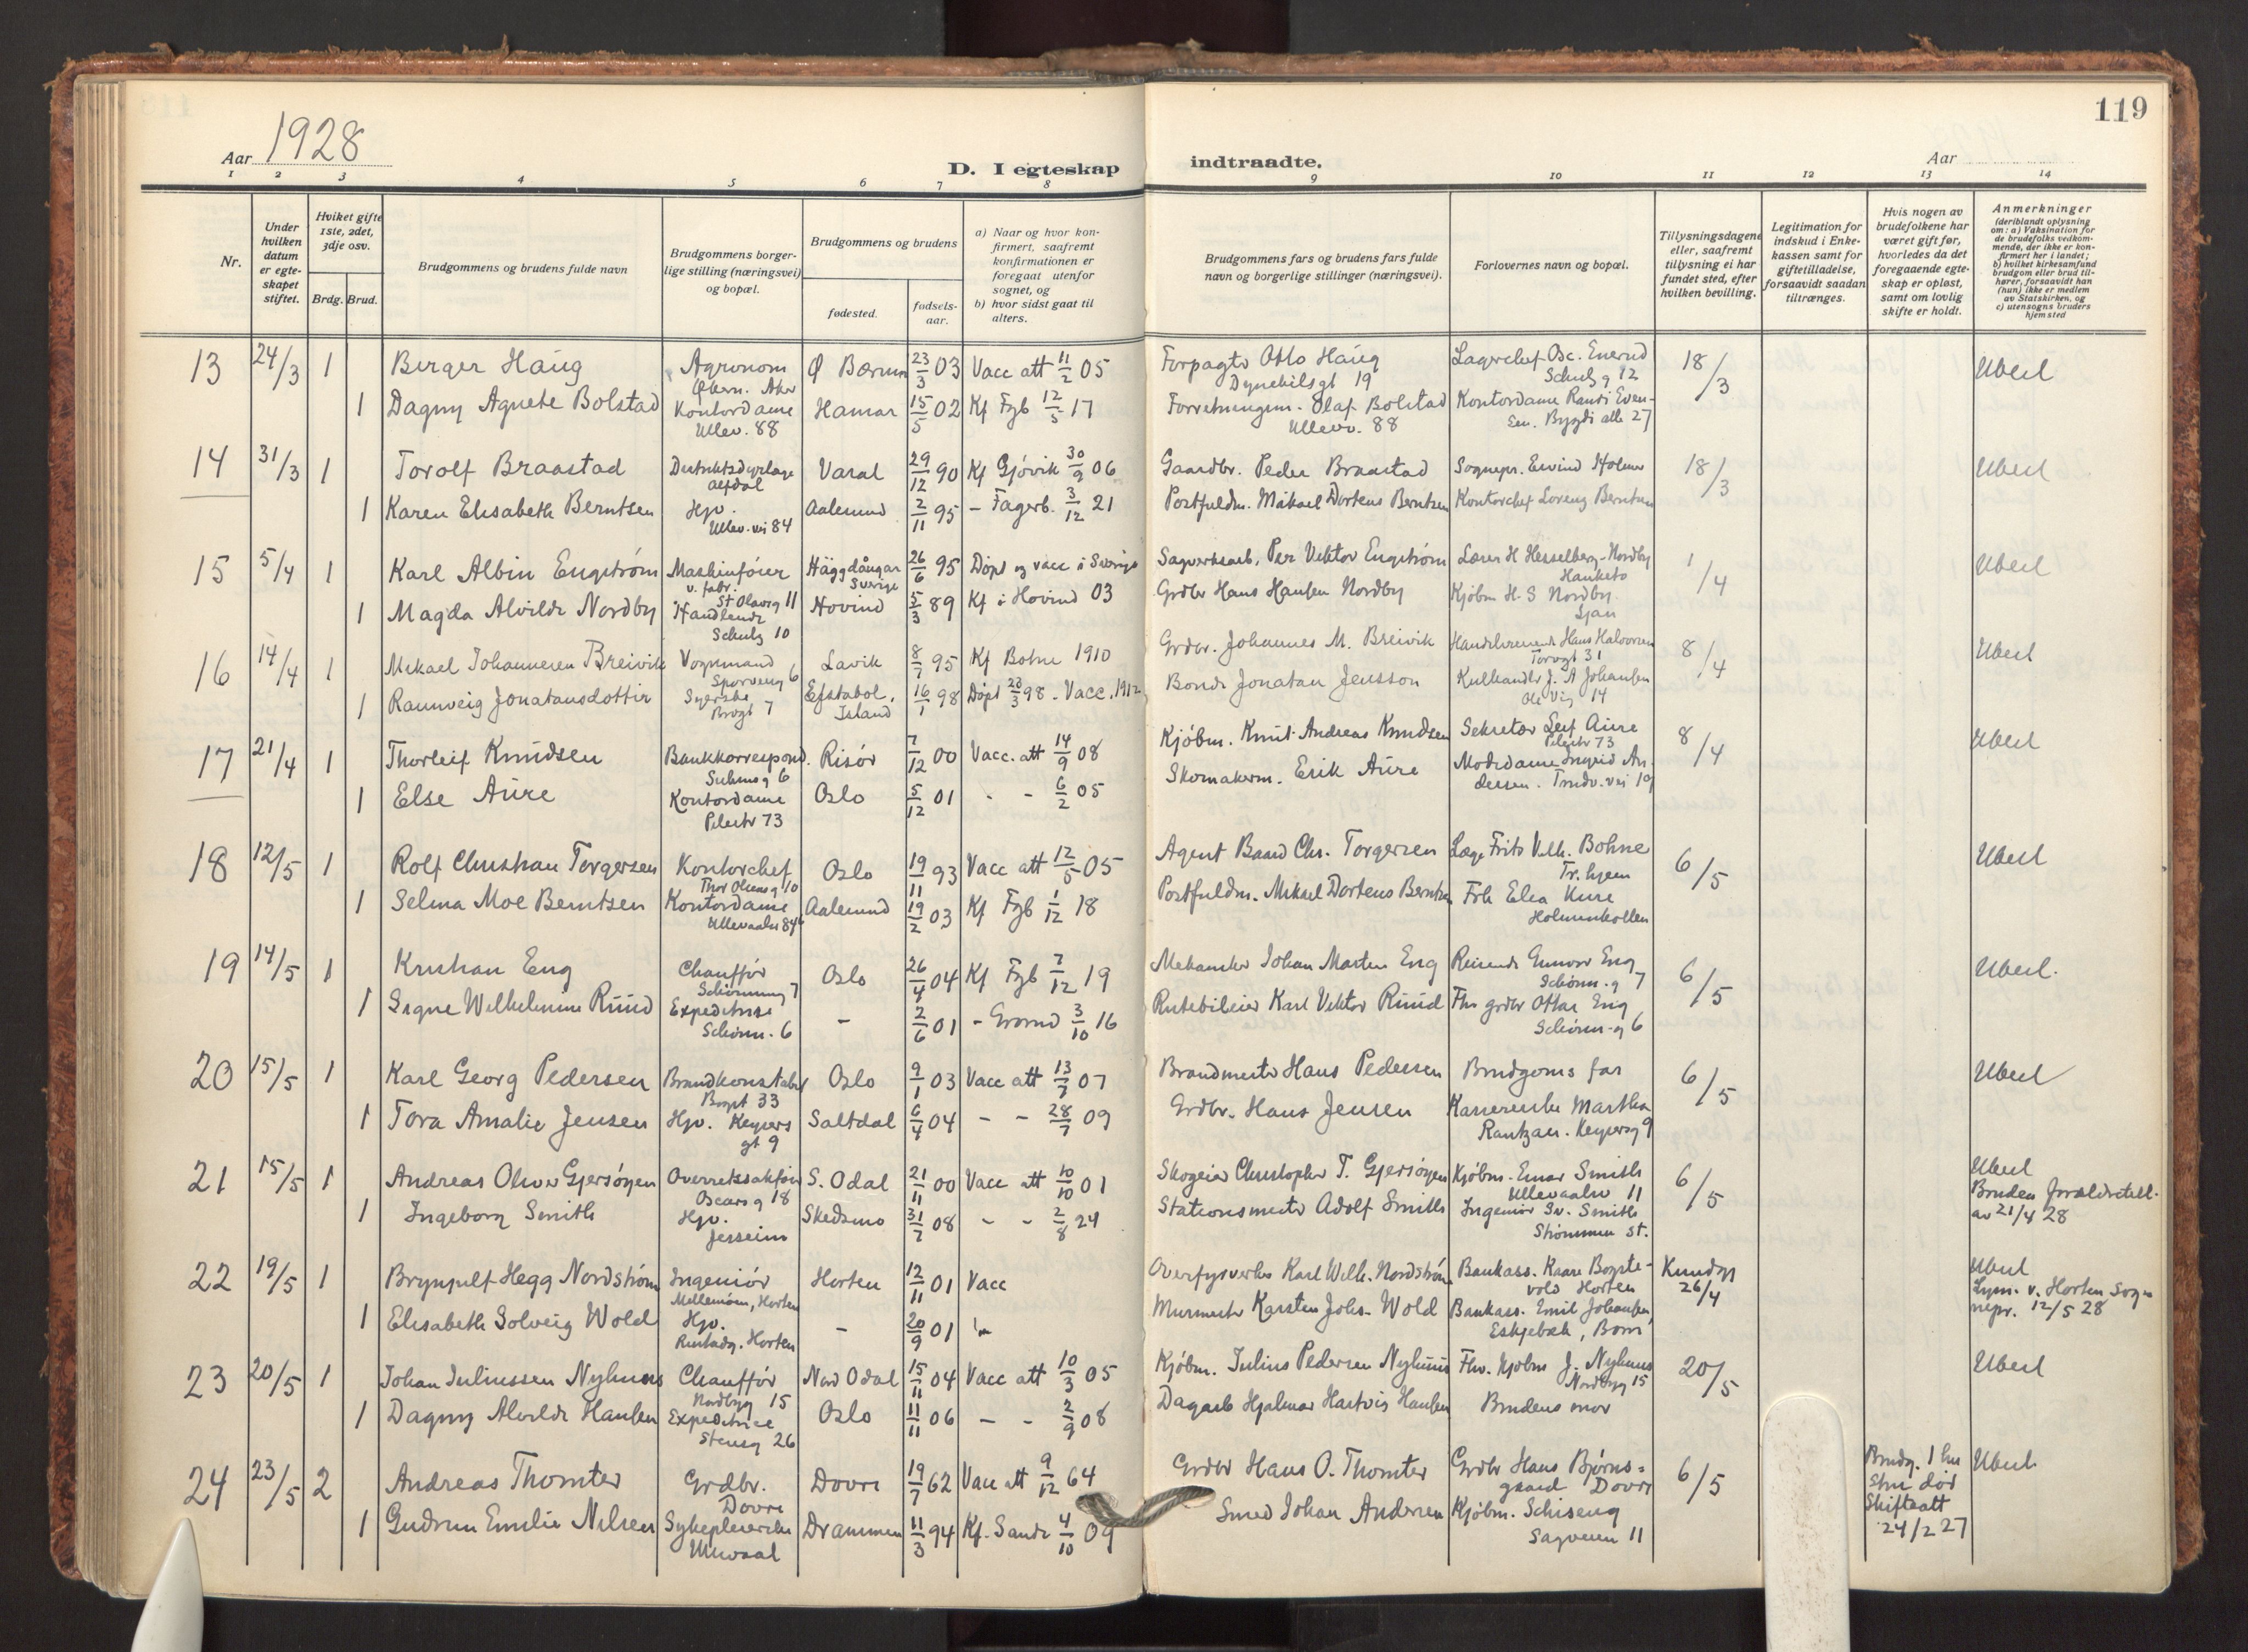 119
Aar 1928
D. I egteskap indtraadte.
Aar
1 2 3 4 5 6 7 8 9 10 11 12 13 14
Nr.
Under hvilken datum er egteskapet stiftet.
Hviket gifte 1ste, 2det, 3dje osv.
Brdg. Brud.
Brudgommens og brudens fulde navn
Brudgommens borgerlige stilling (næringsvei) og bopæl.
Brudgommens og brudens
fødested.
fødselsaar.
a) Naar og hvor konfirmert, saafremt konfirmationen er foregaat utenfor sognet, og
b) hvor sidst gaat til alters.
Brudgommens fars og brudens fars fulde navn og borgerlige stillinger (næringsvei).
Forlovernes navn og bopæl.
Tillysningsdagene eller, saafremt tillysning ei har fundet sted, efter hvilken bevilling.
Legitimation for indskud i Enkekassen samt for giftetilladelse, forsaavidt saadan tiltrænges.
Hvis nogen av brudefolkene har været gift før, hvorledes da det foregaaende egteskap er opløst, samt om lovlig skifte er holdt.
Anmerkninger (deriblandt oplysning om: a) Vaksination for de brudefolks vedkommende, der ikke er konfirmert her i landet; b) hvilket kirkesamfund brudgom eller brud tilhører, forsaavidt han (hun) ikke er medlem av Statskirken, og c) utensogns bruders hjemsted
13 24/3 1 Birger Haug Agronom Ø Bærum 23/3 03 Vacc att 11/2 05 Forpagter Otto Haug Lagerchef Osc. Enerud 18/3 Ubesl
Økern. Aker Dynekilsgt 19 Schulz g 12
1 Dagny Agnete Bolstad Kontordame Hamar 15/5 02 Kf Fgb 12/5 17 Forretningsm. Olaf Bolstad Kontordame Randi Evensen. Bygdø alle 27
Ullev. 88 Ullevv. 88
14 31/3 1 Torolf Braastad Distriktsdyrlæge Vardal 29/12 90 Kf Gjøvik 30/9 06 Gaardbr. Peder Braastad Sognepr. Eivind Holmer 18/3 Ubesl
Alfdal
1 Karen Elisabeth Berntsen Hjv. Aalesund 2/11 95 - Fagerb. 3/12 21 Postfuldm. Mikael Dorteus Berntsen Kontorchef Lorenz Berntsen
Ullev. vei 84
15 5/4 1 Karl Albin Engstrøm Maskinfører Häggdångar 26/6 95 Døpt og vacc i Sverige Sagverksarb. Per Viktor Engstrøm Lærer H Hesselberg-Nordby 1/4 Ubesl
v. fabr. St Olavsg 11 Sverige Hauketo
1 Magda Alvilde Nordby Handlende Hovind 5/3 89 Kf i Hovind 03 Grdbr Hans Hansen Nordby Kjøbm H. S Nordby.
Schulz 10 Ljan
16 14/4 1 Mikael Johannesen Breivik Vognmand Lavik 8/7 95 Kf Bohne 1910 Grdbr. Johannes M. Breivik Hans Halvorsen 8/4 Ubesl
Sporveisg 6 Torvgt 31
1 Rannveig Jonatansdottir Syerske Efstabol, 16/1 98 Døpt 28/3 98 - Vacc. 1912 Bonde Jonatan Jensson Kulhandler J. A Johansen
Brogt 7 Island Ole Vig 14
17 21/4 1 Thorleif Knudsen Bankkorrespond. Risør 7/12 00 Vacc. att 14/9 08 Kjøbm. Knut Andreas Knudsen Sekretær Leif Aure 8/4 Ubesl
Suhms g 6 Pilestr 73
1 Else Aure Kontordame Oslo 5/12 01 - - 6/2 05 Skomakerm. Erik Aure Modedame Ingrid Andersen. Trondv. vei 19
Pilestr 73
18 12/5 1 Rolf Christian Torgersen Kontorchef Oslo 19/11 93 Vacc att 12/5 05 Agent Baard Chr. Torgersen Læge Frits Vilh. Bohne 6/5 Ubesl
Thor Olsens g 10 Tr. hjem
1 Selma Moe Berntsen Kontordame Aalesund 19/2 03 Kf Fgb 1/12 18 Postfuldm. Mikael Dorteus Berntsen Frk Elea Kure
Ullevaalsv 84 Holmenkollen
19 14/5 1 Kristian Eng Chauffør Oslo 26/4 04 Kf Fgb 7/12 19 Mekaniker Johan Martin Eng Reisende Gunvor Eng 6/5 Ubesl.
Schønning 7 Schønn. g 7
1 Signe Wilhelmine Ruud Expeditrise - 2/6 01 - Grorud 3/10 16 Rutebileier Karl Viktor Ruud Fhv grdbr Ottar Eng
Schønn. 6 Schønn-g 6
20 15/5 1 Karl Georg Pedersen Brandkonstabel Oslo 9/1 03 Vacc att 13/7 07 Brandmester Hans Pedersen Brudgoms far 6/5 Ubesl
Bogst 33
1 Tora Amalie Jensen Hjv. Keysers Saltdal 6/4 04 - - 28/7 09 Grdbr. Hans Jensen Kassererske Martha
gt 9 Rantzau. Keysersg 9
21 15/5 1 Andreas Oliver Gjersøyen Overretssakfører S. Odal 21/11 00 Vacc att 10/10 01 Skogeier Christopher T. Gjersøyen Kjøbm. Einar Smith 6/5 Ubesl
Oscars g 18 Ullevaalsv 11 Bruden forældretill.
1 Ingeborg Smith Hjv. Skedsmo 31/7 08 - - 2/8 24 Stationsmester Adolf Smith Ingeniør Sv. Smith av 21/4 28
Jessheim Strømmen st.
22 19/5 1 Brynjulf Hegg Nordstrøm Ingeniør Horten 12/11 01 Vacc Overfyrverker Karl Wilh. Nordstrøm Bankass. Kaare Bogstevold Horten Kundgj 26/4 Ubesl
Mellemøen, Horten Lysn. v. Horten sogn
1 Elisabeth Solveig Wold Hjv. - 20/9 01 Murmester Karsten Johs. Wold Bankass. Emil Johansen nepr. 12/5 28
Rustadg. Horten Eskjebæk, Borre
23 20/5 1 Johan Juliussen Nyhuus Chauffør Nord Odal 15/11 04 Vacc att 10/3 05 Kjøbm. Julius Pedersen Nyhuus Fhv. kjøbm J. Nyhuus 20/5 Ubesl
Nordbyg 15 Nordbyg 15
1 Dagny Alvilde Hansen Expeditrice Oslo 11/11 06 - - 2/9 08 Dagarb Hjalmar Hartvig Hansen Brudens mor
Stensg 26
24 23/5 2 Andreas Thomter Grdbr. Dovre 19/7 62 Vacc att 9/12 64 Grdbr Hans O. Thomter Grdbr Hans Bjørnsgaard Dovre 6/5 Brudg. 1 hustru død Skifteatt 24/2 27 Ubesl.
Dovre
1 Gudrun Emilie Nilsen Sykepleierske Drammen 11/3 94 Kf. Sande 4/10 09 Smed Johan Andersen Kjøbm. Schiseng
Ullevaal Sagveien 11